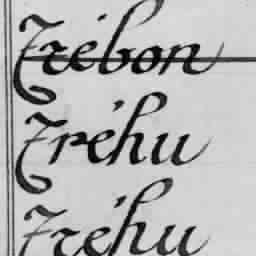 Trébon
Tréhu
Tréhu